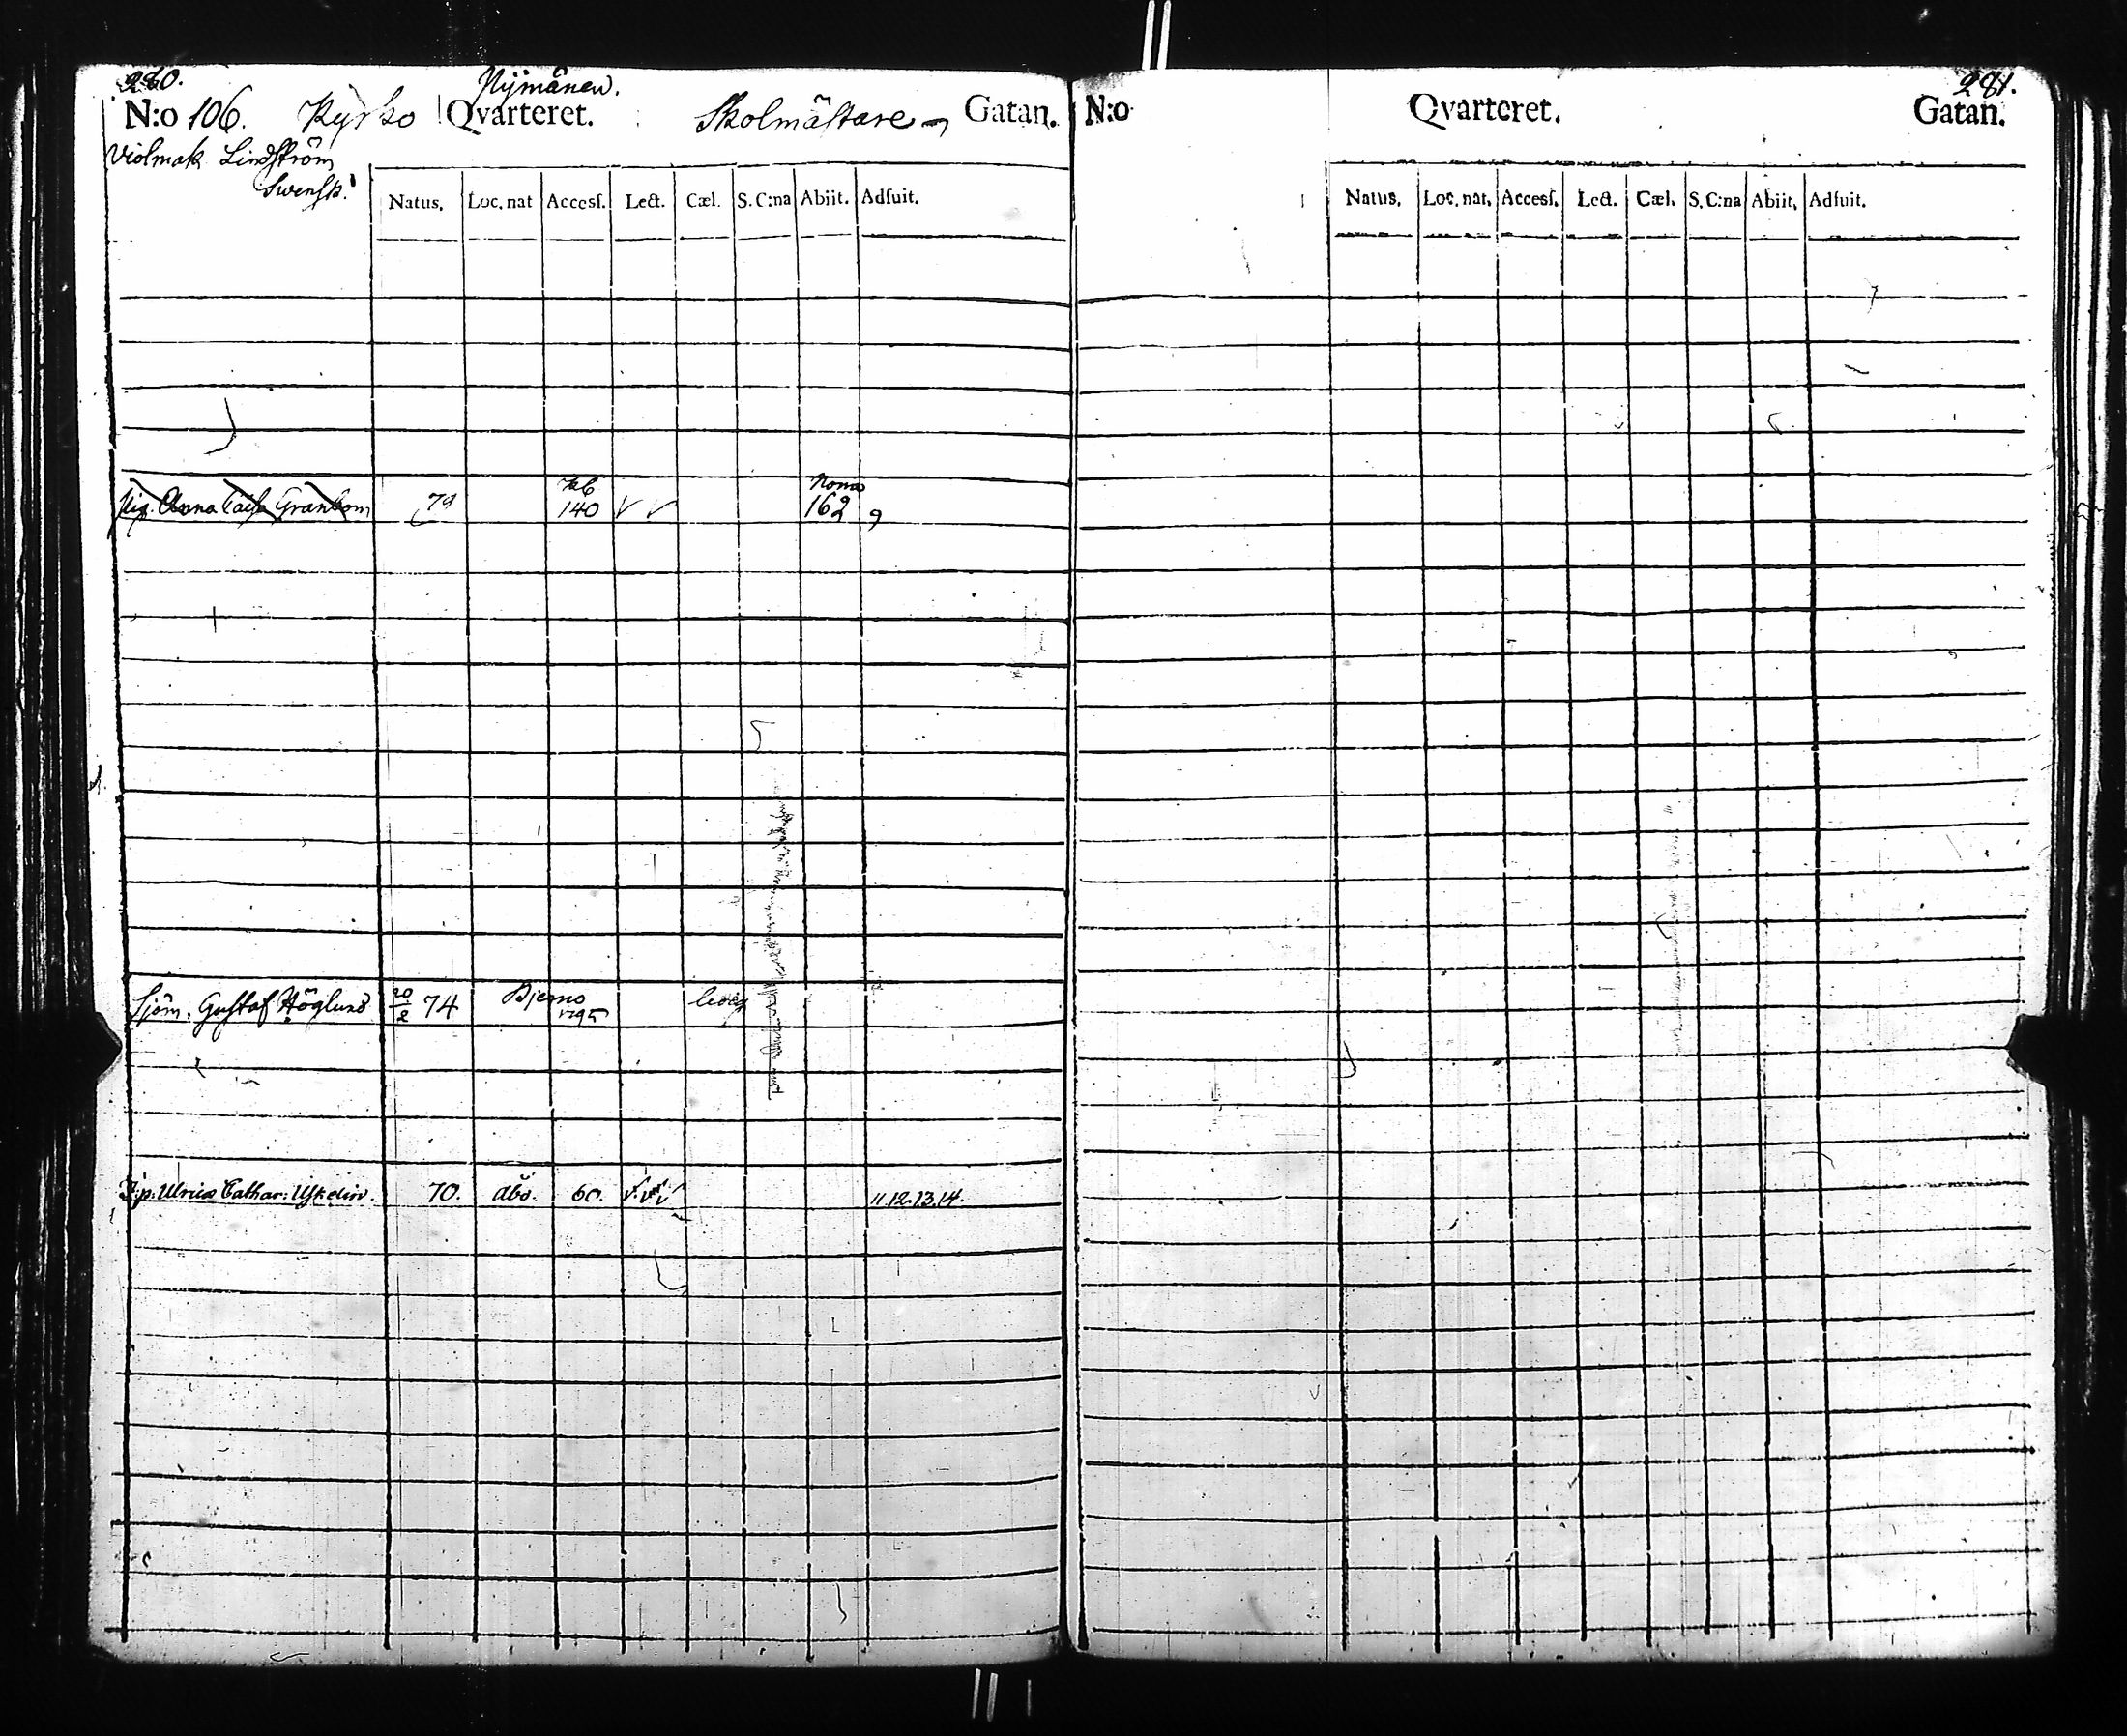 280.
Nÿmånen.
N:o 106. Kyrko Qvarteret. Skolmästare Gatan.
Violmak Lindström
Swensk.
Natus. Loc. nat Accesſ. Lect. Cæl. S. C:na Abiit. Adfuit.
Pig. Anna Caisa Granbom 79 140 162 9
Sjöm. Gustaf Höglund 20/2 74 Bjerno 1795 ledig
Ulrica Cathar: 70. åbo. 60. v. v. v 11.12.13.14.
281.
N:o Qvarteret. Gatan.
Natus. Loc. nat. Accesſ. Lect. Cæl. S. C:na Abiit. Adfuit.